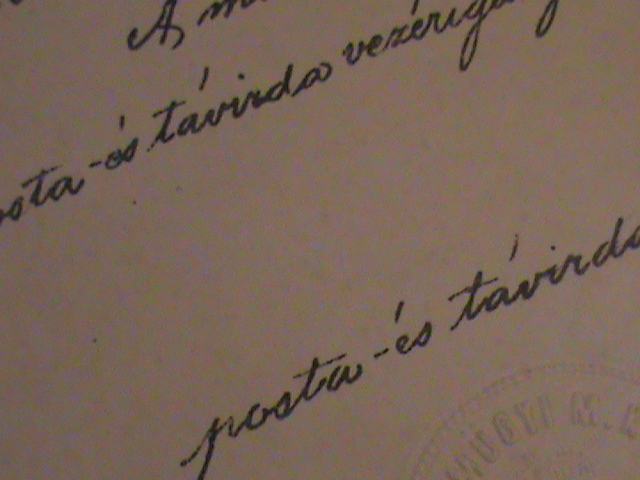 A m
osta-és távirda vezérig
posta-és távirda
ÜGYI M. K